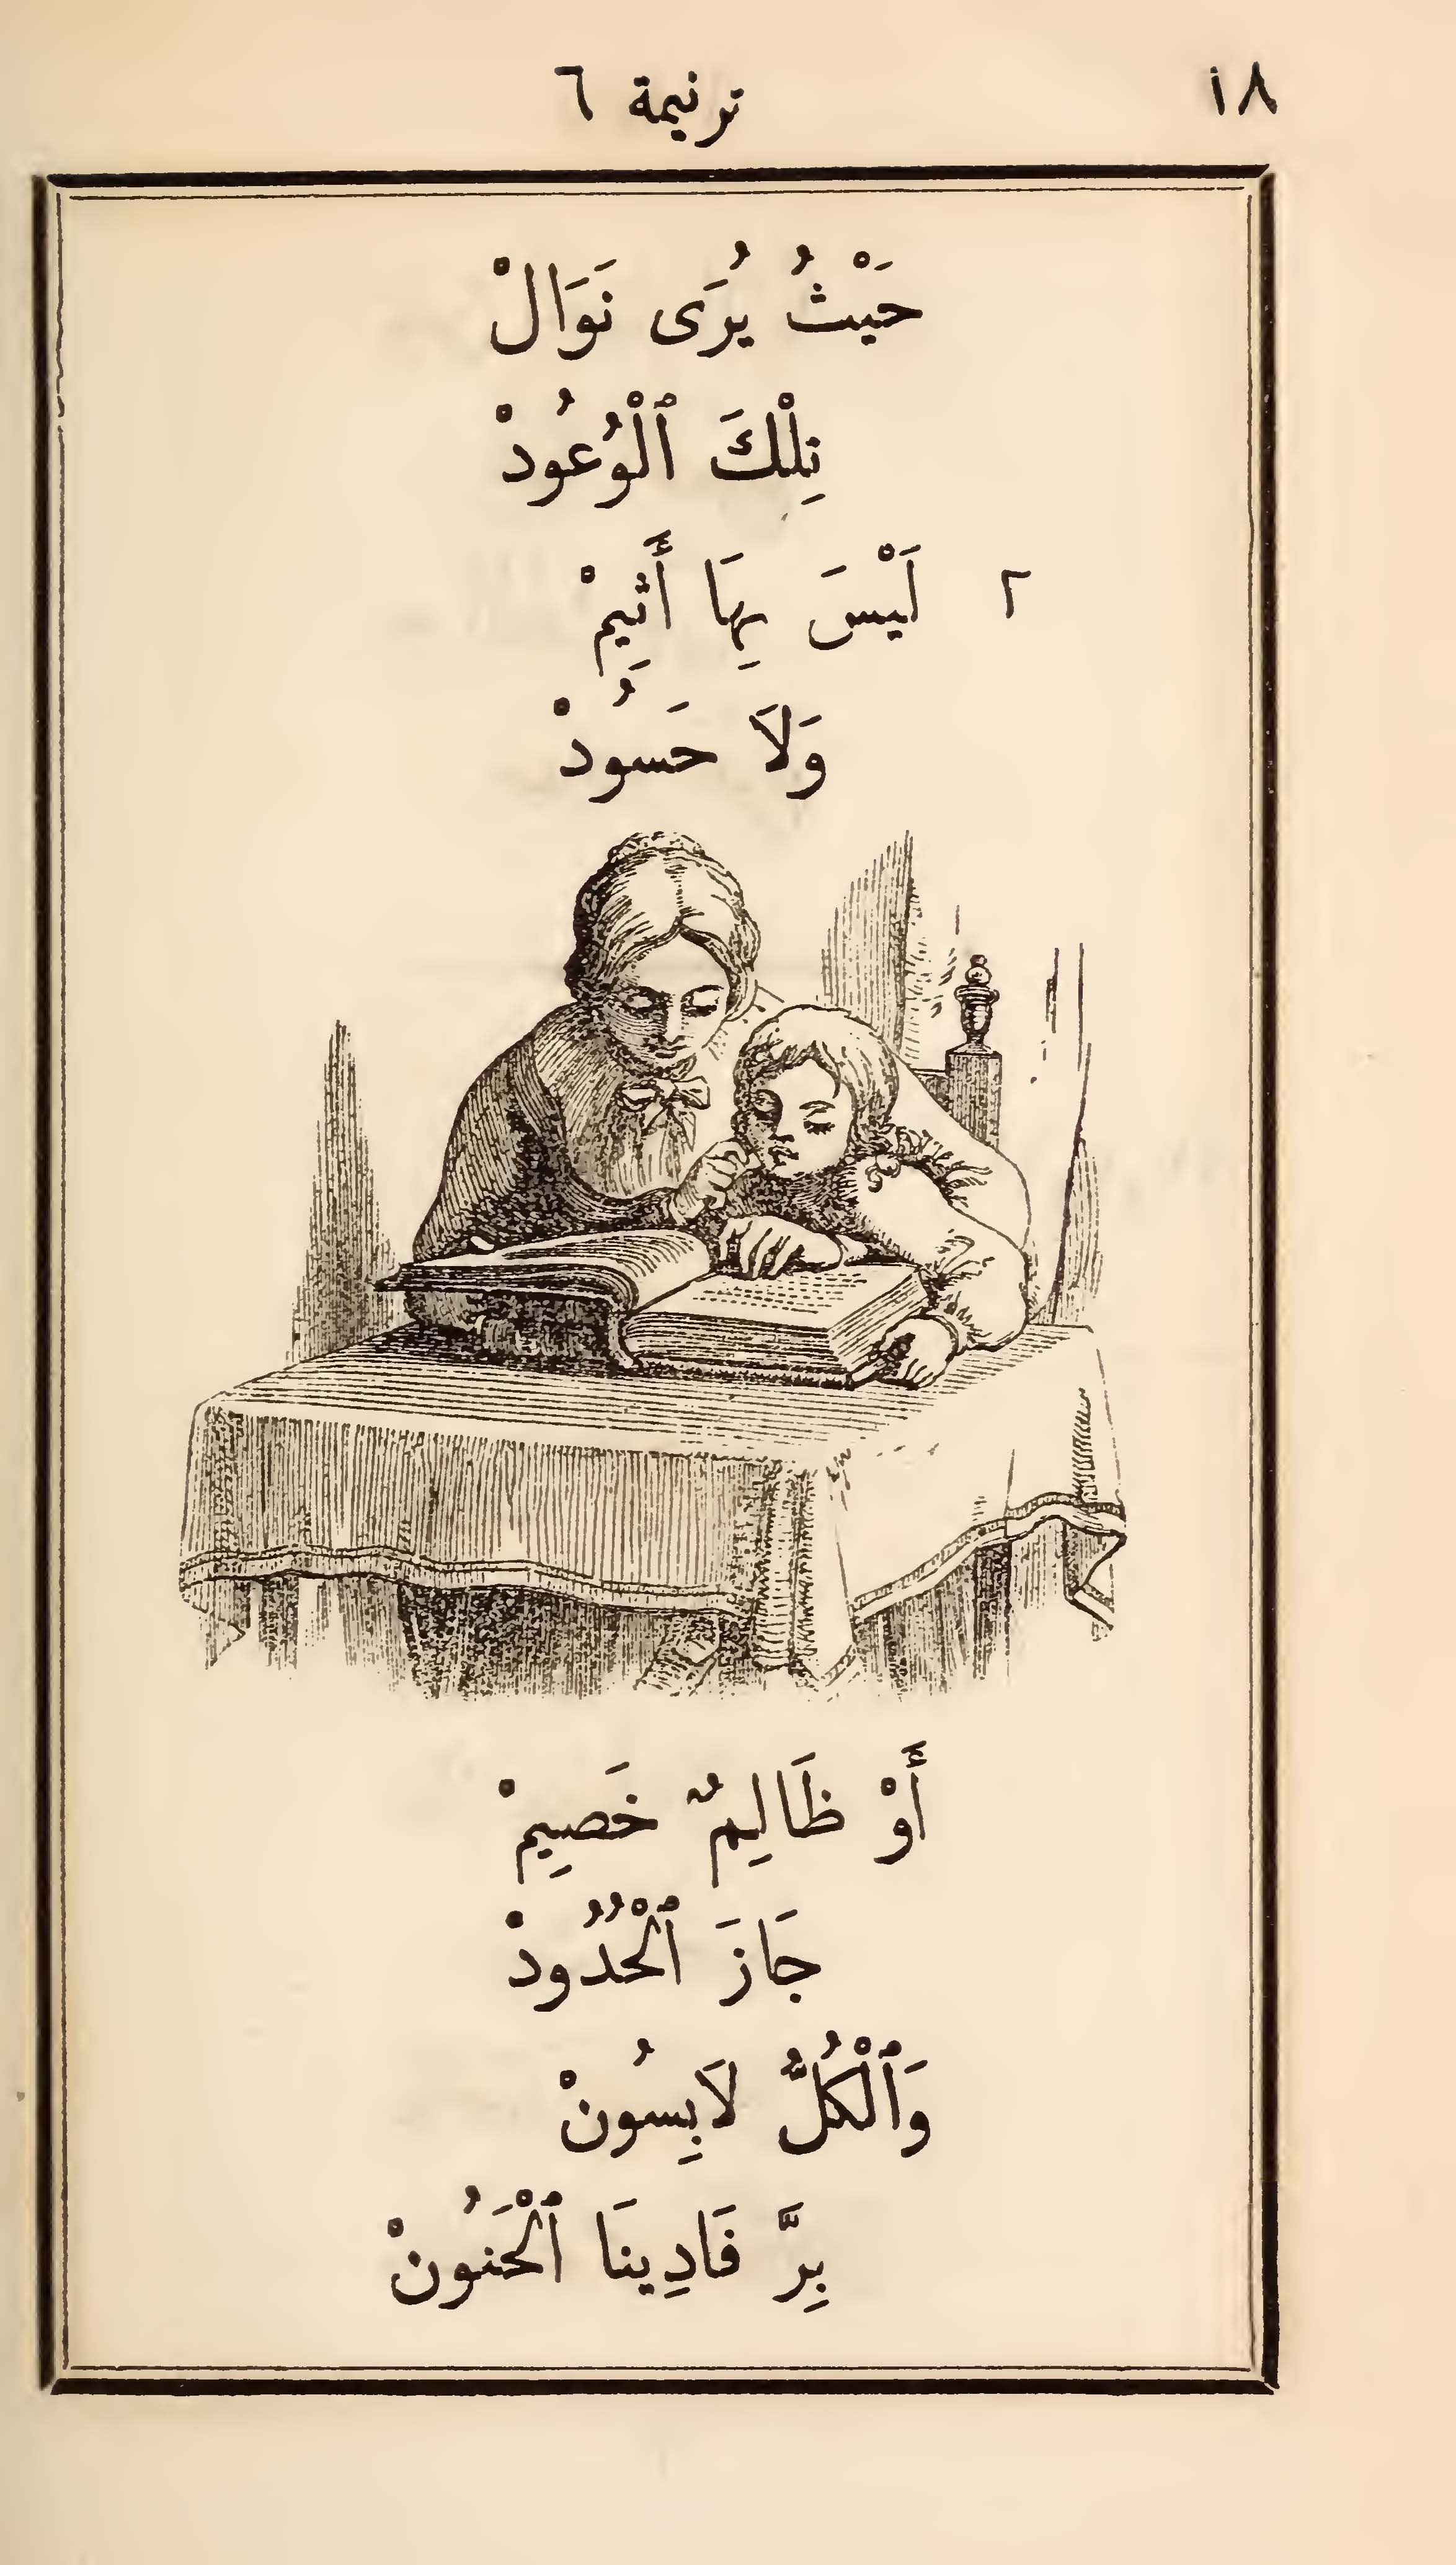 ١٨ ترنيمة ٦
حَيْثُ يُرَى نَوَالْ
تِلْكَ ٱلْوُعُودْ
٢ لَيْسَ بِهَا أَثِيمْ
وَلَا حَسُودْ
أَوْ ظَالِمٌ خَصِيمْ
جَازَ ٱلْحُدُودْ
وَٱلْكُلُّ لَابِسُونْ
بِرَّ فَادِينَا ٱلْحَنُونْ